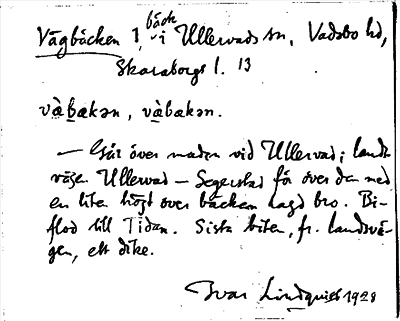 Vägbäcken 1, bäck i Ullervads sn, Vadsbo hd,
Skaraborgs l. 13
vàbakən, vàbakən.
— Går över maden vid Ullervad; lands-
vägen Ullervad — Segerstad får över den med
en liten högt över bäcken lagd bro. Bi-
flod till Tidan. Sista biten, fr. landsvä-
gen, ett dike.
Ivar Lindquist 1928